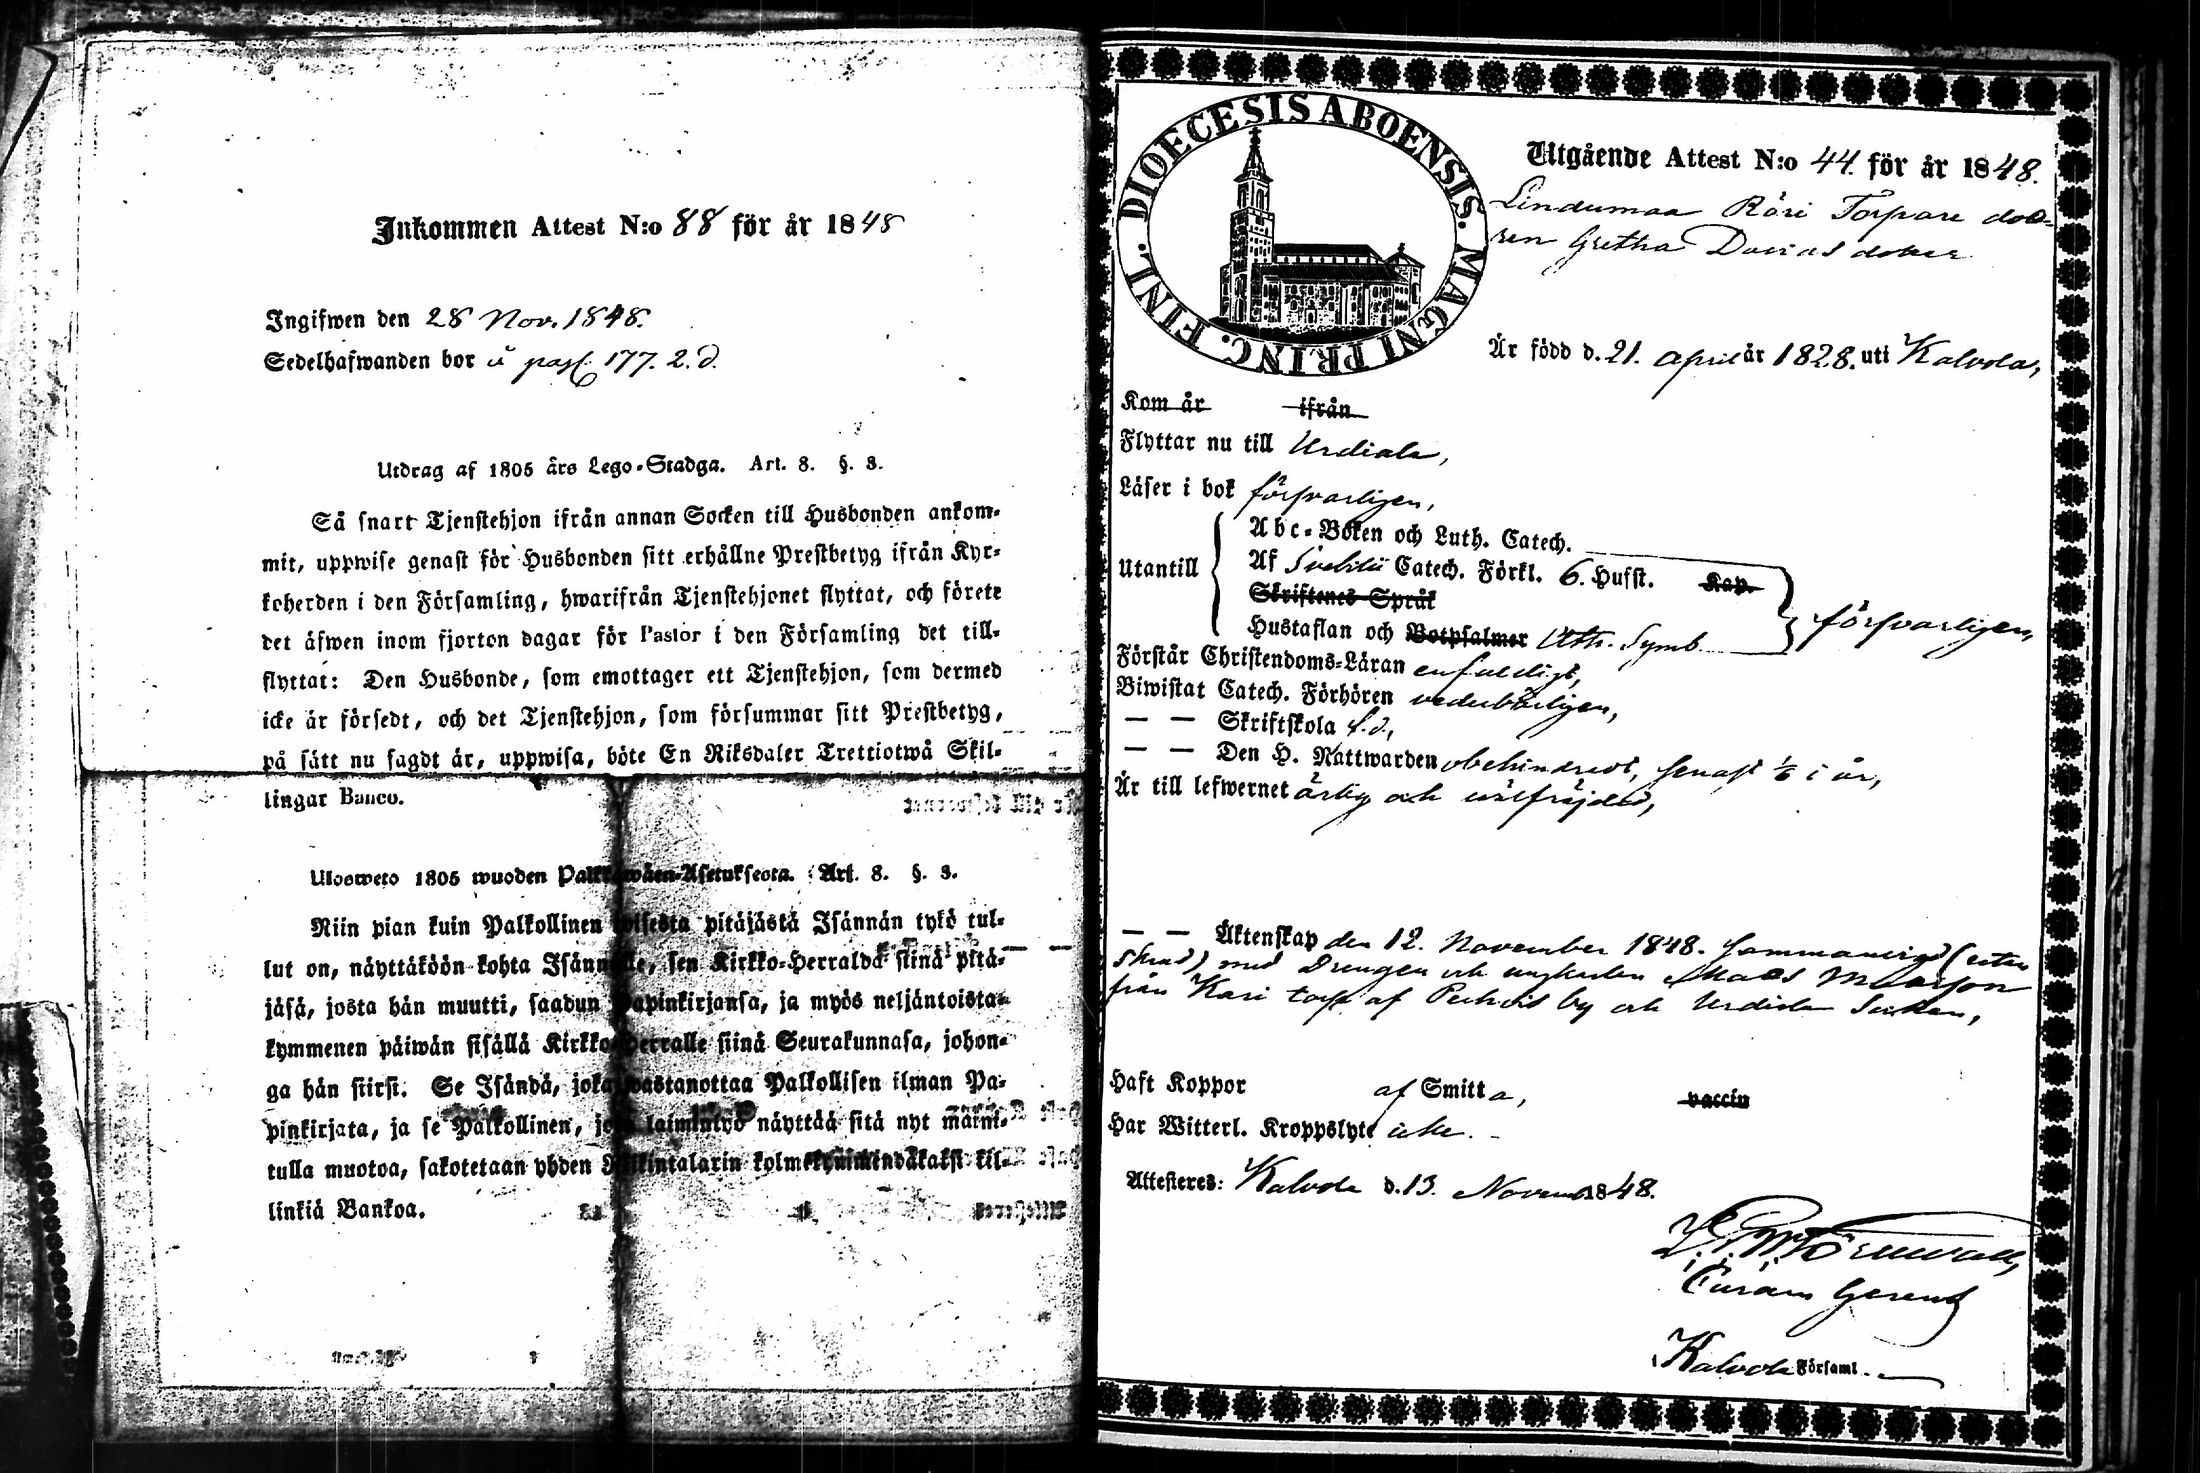 Inkommen Attest N:o 88 för år 1848
Ingifwen den 28 Nov. 1848.
Sedelhafwanden bor å pag. 177. 2. d.
Utdrag af 1805 års Lego-Stadga. Art. 8. §. 3.
Så snart Tjenstehjon ifrån annan Socken till Husbonden ankom-
mit, uppwise genast för Husbonden sitt erhållne Prestbetyg ifrån Kyr-
koherden i den Församling, hwarifrån Tjenstehjonet flyttat, och förete
det äfwen inom fjorton dagar för Pastor i den Församling det till-
flyttat: Den Husbonde, som emottager ett Tjenstehjon, som dermed
icke är försedt, och det Tjenstehjon, som försummar sitt Prestbetyg,
på sätt nu sagdt är, uppwisa, böte En Riksdaler Trettiotwå Skil-
lingar Banco.
Ulosweto 1805 wuoden Palkkawäen-Asetuksesta. Art. 8. §. 3.
Niin pian kuin Palkollinen toisesta pitäjästä Isännän tykö tul-
lut on, näyttäköön kohta Isännälle, sen Kirkko-Herralda siinä pitä-
jäsä, josta hän muutti, saadun Papinkirjansa, ja myös neljäntoista-
kymmenen päiwän sisällä Kirkko-Herralle siinä Seurakunnasa, johon-
ga hän siirsi. Se Isändä, joka wastanottaa Palkollisen ilman Pa-
pinkirjata, ja se Palkollinen, joka laiminlyö näyttää sitä nyt maini-
tulla muotoa, sakotetaan yhden Riikintalarin kolmekymmendäkaksi kil-
linkiä Bankoa.
DIOECESIS ABOENSIS. MAGNI PRINC. FINL.
Utgående Attest N:o 44. för år 1848.
Lindumaa Röri Torpare dot-
ren Gretha Davidsdotter
Är född d. 21. April år 1828. uti Kalvola,
Kom år ifrån
Flyttar nu till Urdiala,
Läser i bok försvarligen,
Utantill
Abc-Boken och Luth. Catech.
Af Svebilii Catech. Förkl. 6. Hufst. Kap.
Skriftenes Språk
Hustaflan och Botpsalmer Ath. Symb.
försvarligen,
Förstår Christendoms-Läran enfaldigt,
Biwistat Catech. Förhören vederbörligen,
— — Skriftskola s.d.,
— — Den H. Nattwarden obehindradt, senast 1/6 i år,
Är till lefwernet ärlig och välfräjdad,
— — Äktenskap den 12. November 1848. sammanvigd (
) med Drängen och ungkarlen Mats
från Kari torp af by och Urdiala Socken,
Haft Koppor af Smitta, vaccin
Har Witterl. Kroppslyte icke. -
Attesteres: Kalvola d. 13. Novemb. 1848.
Curam Gerens
Kalvola Församl.